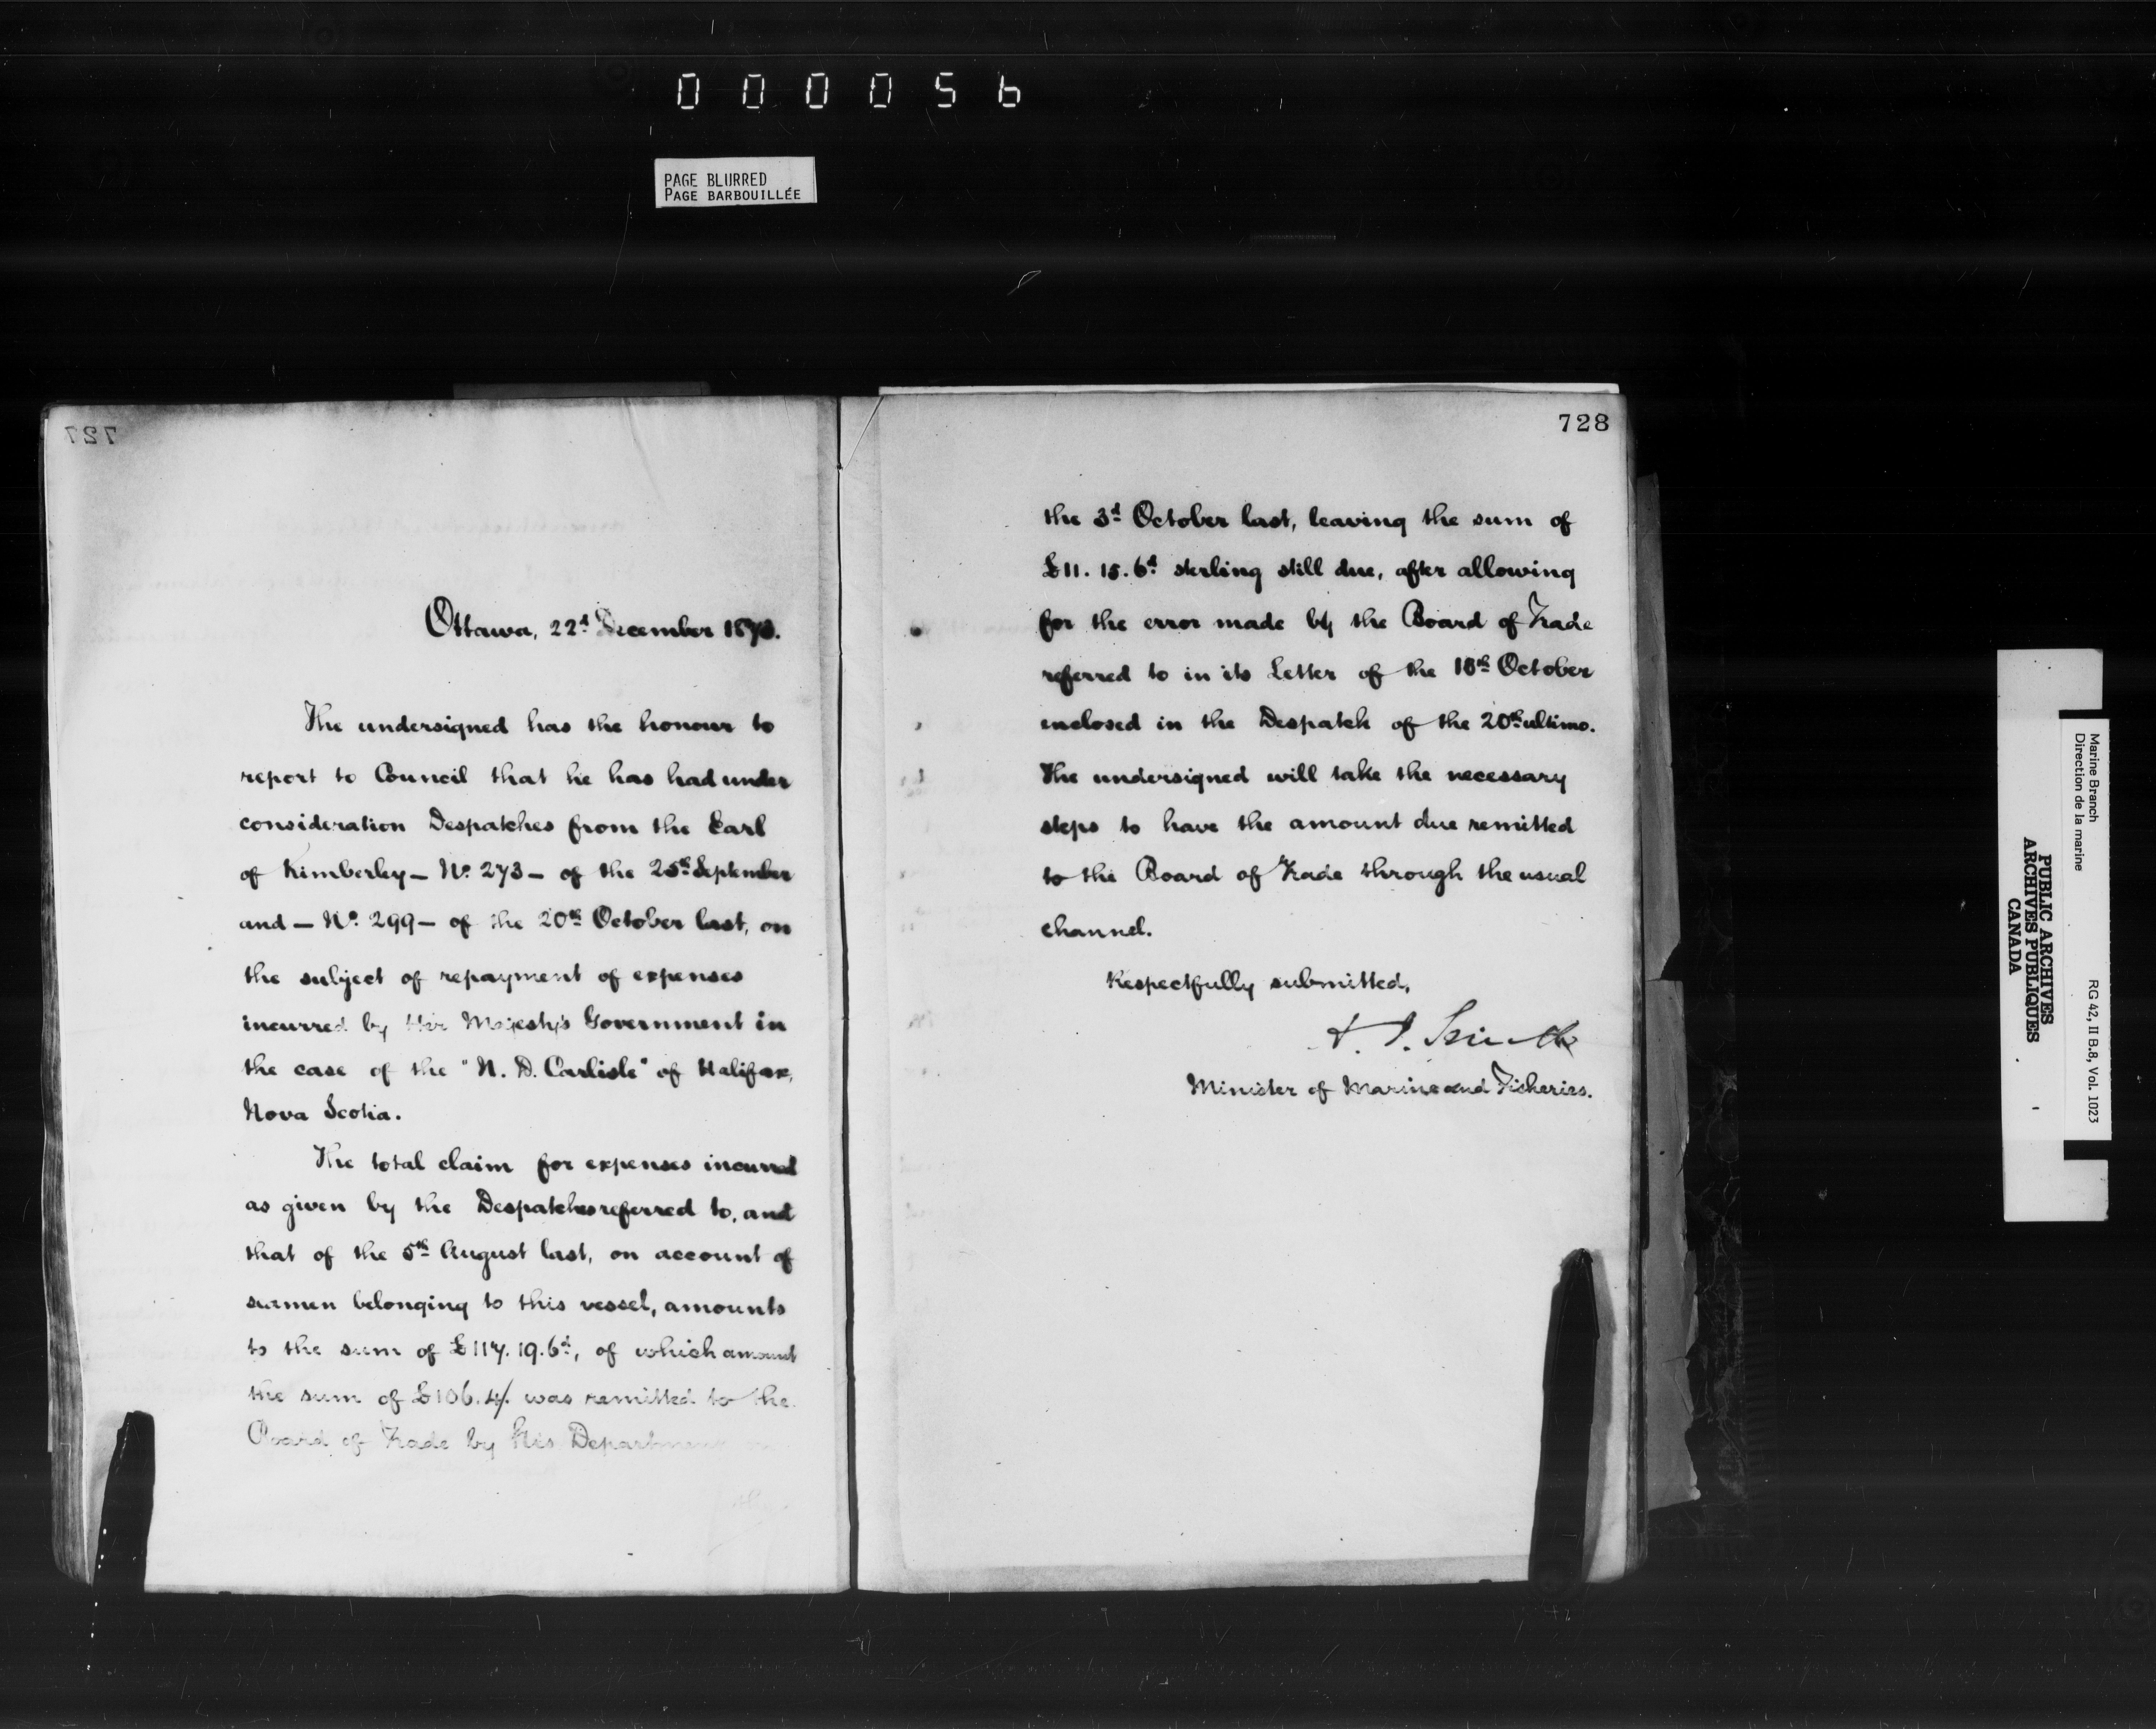 000056
PAGE BLURRED
PAGE BARBOUILLÉE
727
Ottawa, 22d December 1873.
The undersigned has the honour to
report to Council that he has had under
consideration Despatches from the Earl
of Kimberley — No. 273 — of the 25th September
and — No. 299 — of the 20th October last, on
the subject of repayment of expenses
incurred by Her Majesty's Government in
the case of the "N. D. Carlisle" of Halifax,
Nova Scotia.
The total claim for expenses incurred
as given by the Despatches referred to, and
that of the 5th August last, on account of
seamen belonging to this vessel, amounts
to the sum of £117. 19. 6d, of which amount
the sum of £106. 4/. was remitted to the
Board of Trade by this Department
728
the 3d October last, leaving the sum of
£11. 15. 6d sterling still due, after allowing
for the error made by the Board of Trade
referred to in its Letter of the 18th October
enclosed in the Despatch of the 20th ultimo.
The undersigned will take the necessary
steps to have the amount due remitted
to the Board of Trade through the usual
channel.
Respectfully submitted,
Smith
Minister of Marine and Fisheries.
Marine Branch
Direction de la marine
RG 42, II B.8, Vol. 1023
PUBLIC ARCHIVES
ARCHIVES PUBLIQUES
CANADA